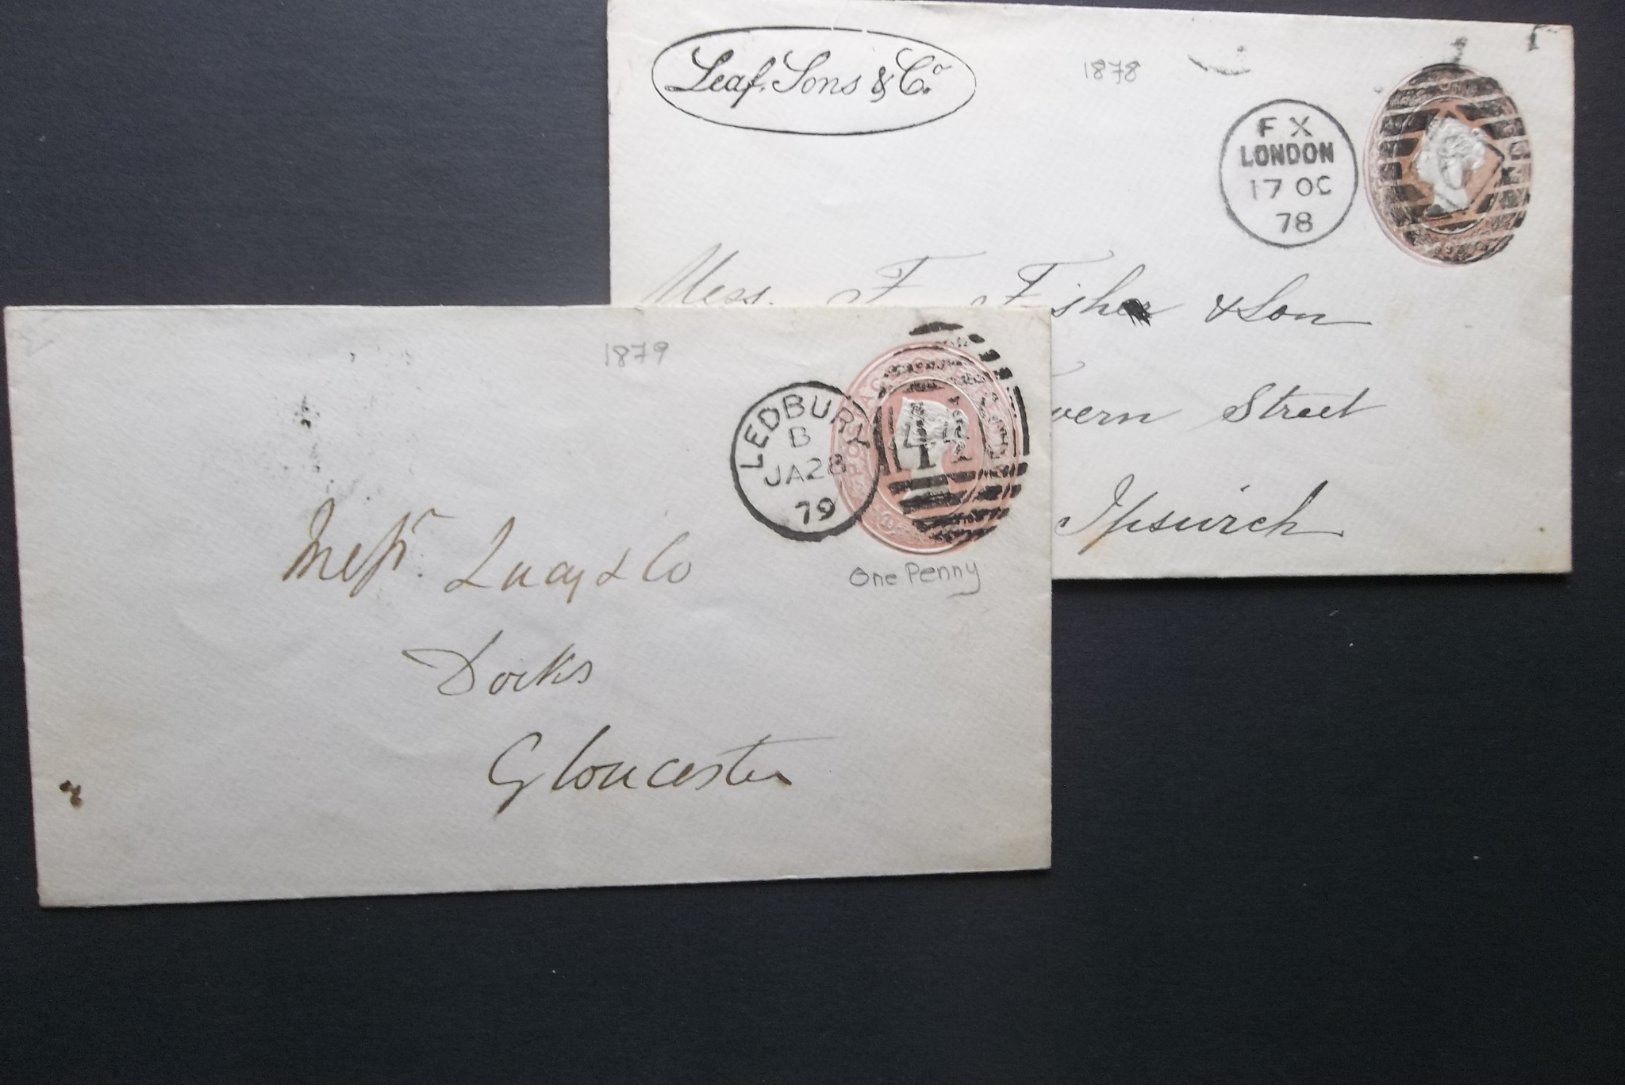 Leaf, Sons & Co.
1878
F X
LONDON
17 OC
78
Mess. F. Fisher & Son
vern Street
Ipswich
1879
LEDBURY
B
JA 28
79
One Penny
Messrs. Lucy & Co
Docks
Gloucester